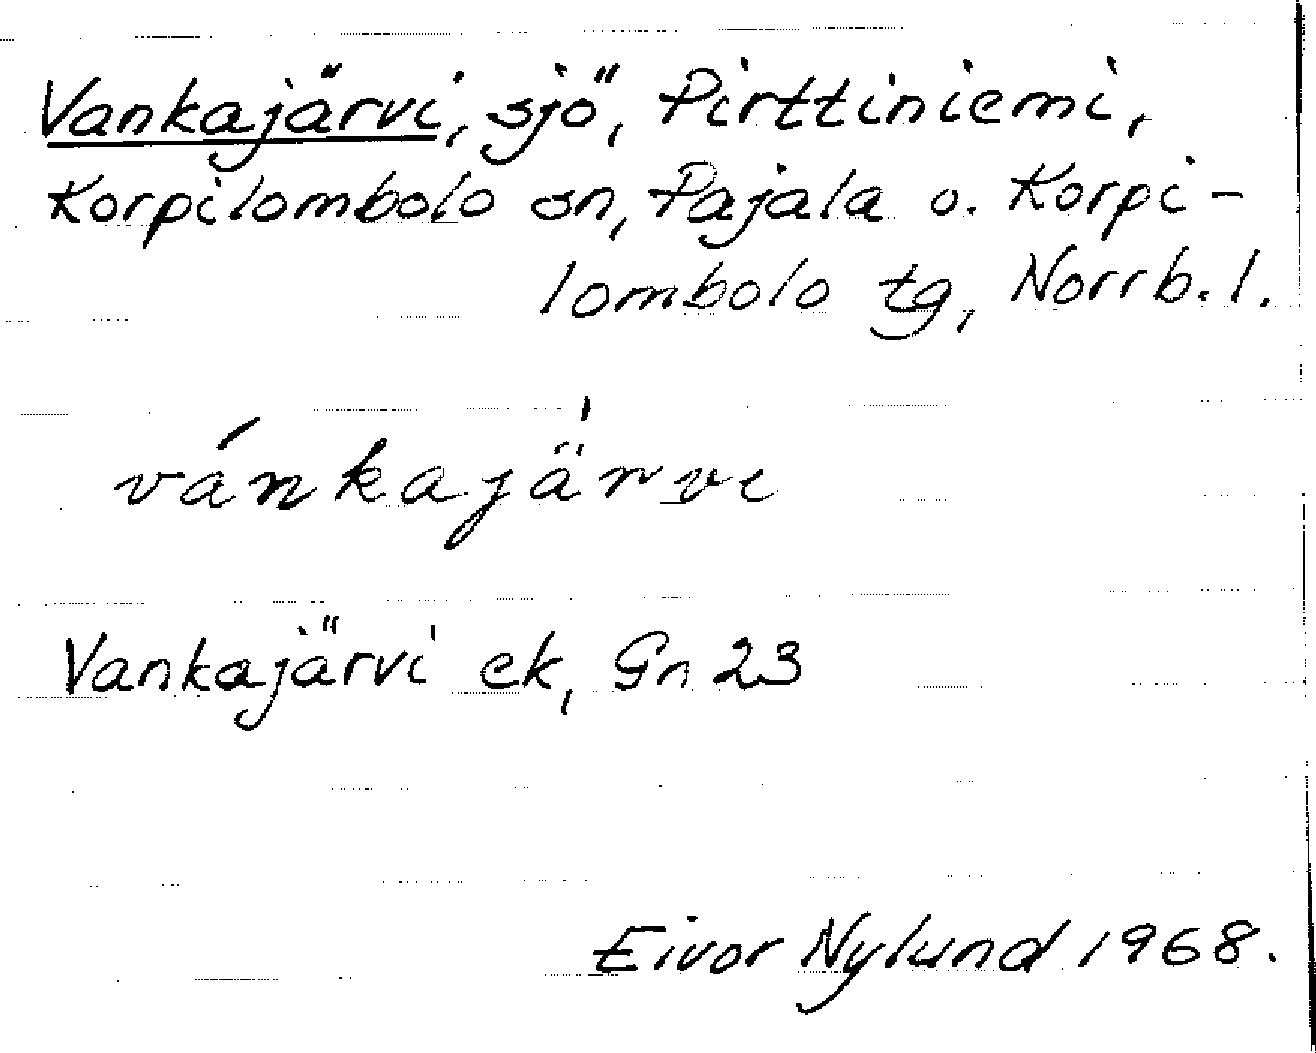 Vankajärvi, sjö, Pirttiniemi,
Korpilombolo sn, Pajala o. Korpi-
lombolo tg, Norrb. l.
vánkajä̀rvi
Vankajärvi ek, Gn 23
Eivor Nylund 1968.